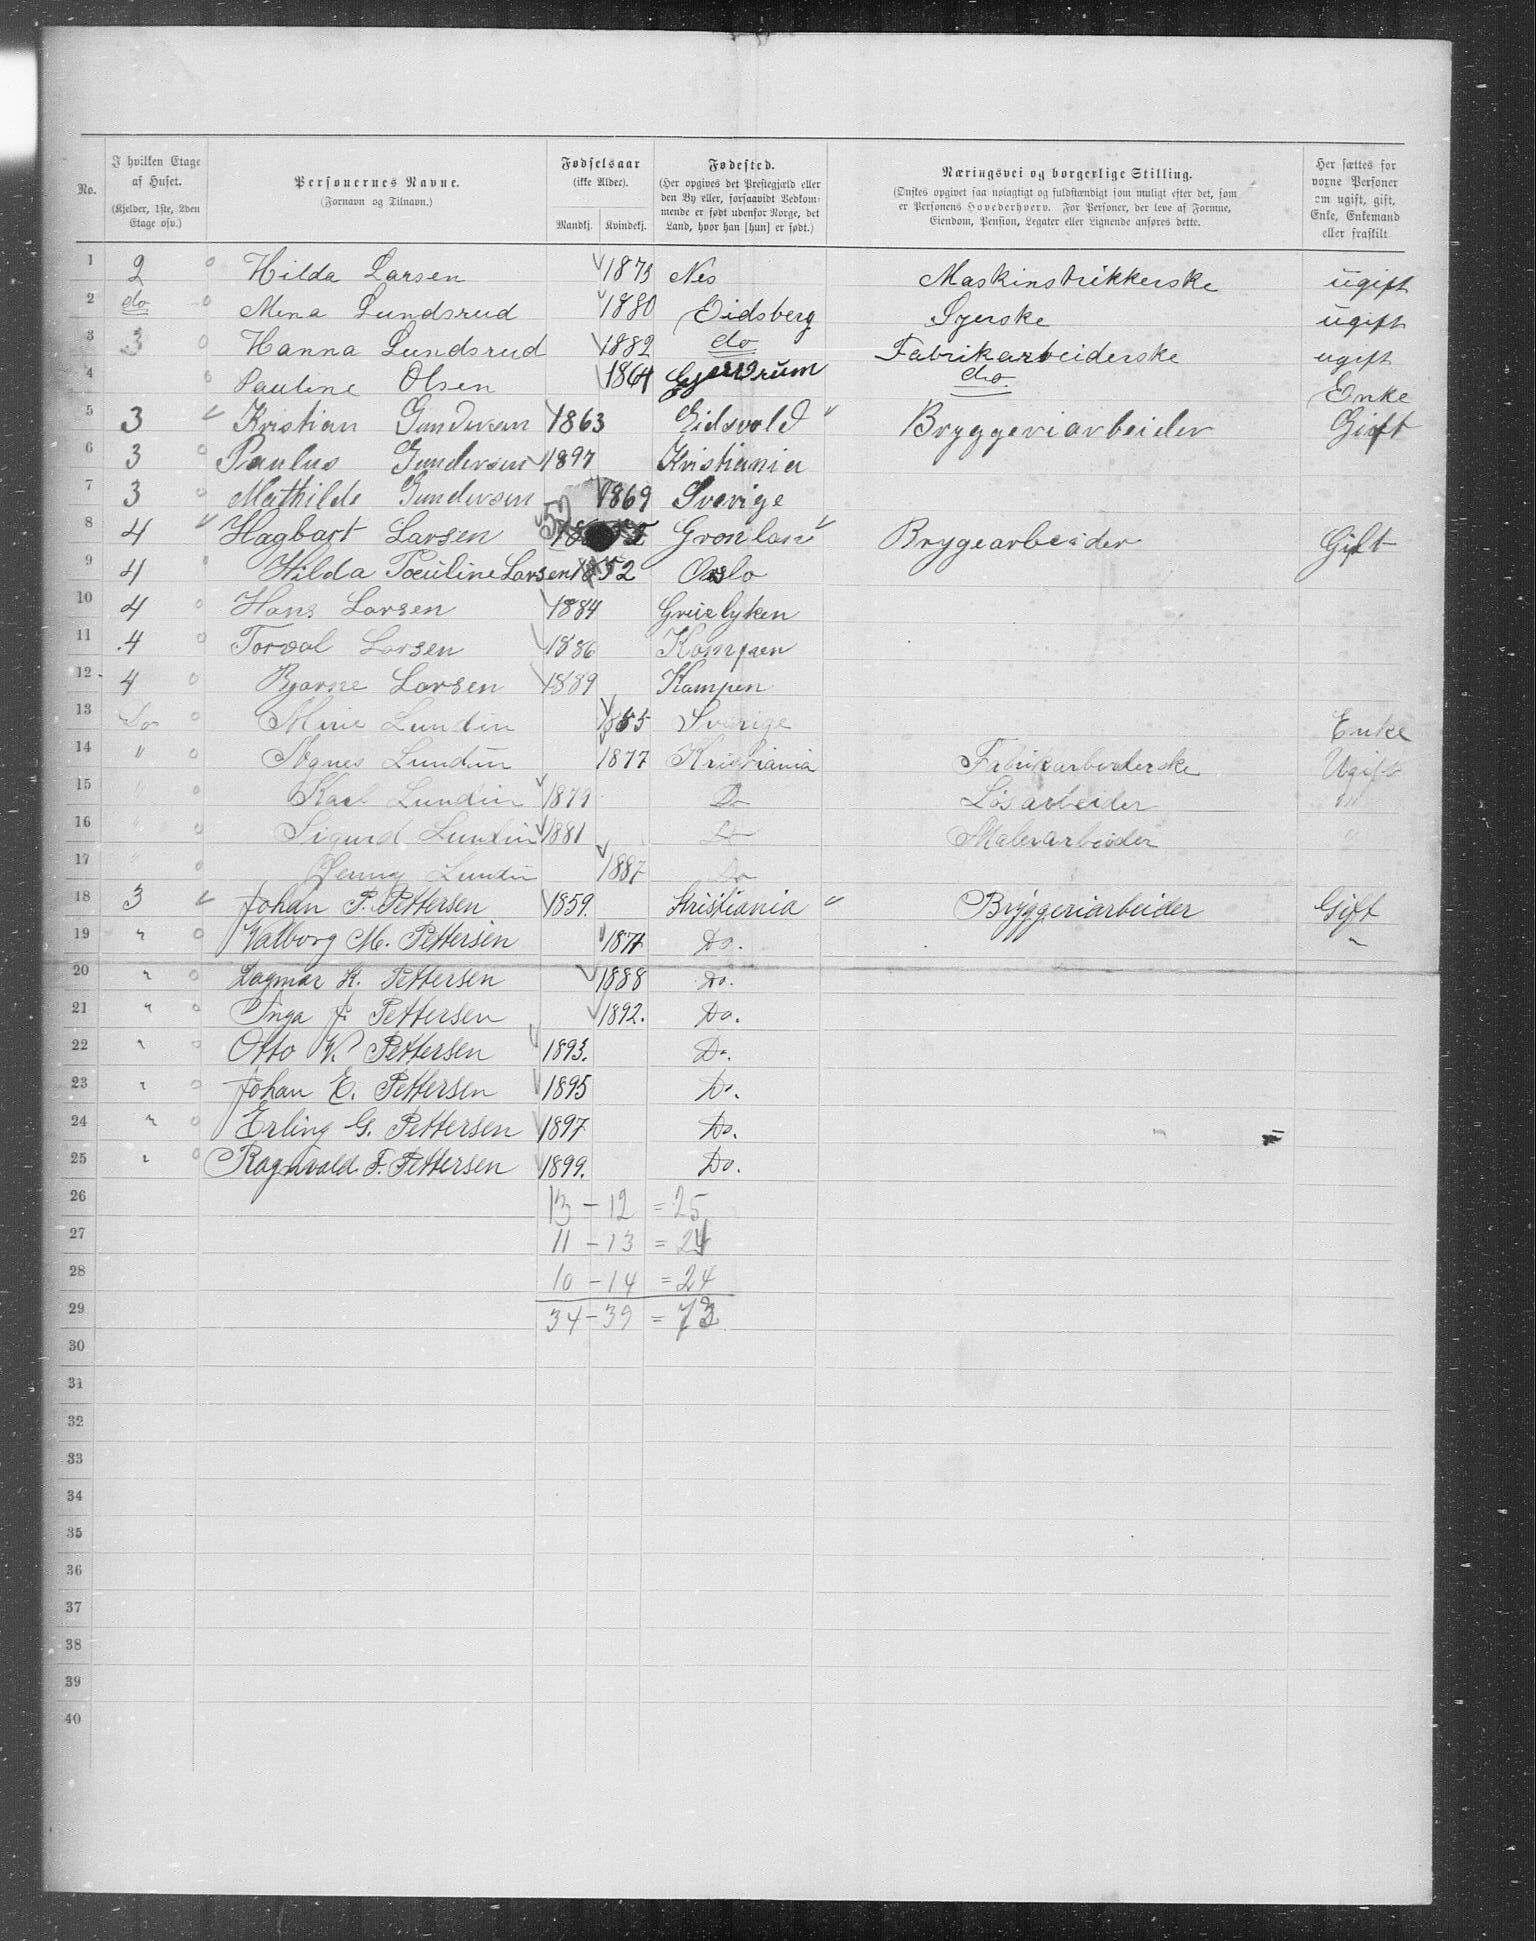 No.
I hvilken Etage af Huset. (Kjelder, 1ste, 2den Etage osv.)
Personernes Navne. (Fornavn og Tilnavn.)
Fødselsaar (ikke Alder). Mandkj. Kvindekj.
Fødested. (Her opgives det Prestegjæld eller den By eller, forsaavidt Vedkommende er født udenfor Norge, det Land, hvor han [hun] er født.)
Næringsvei og borgerlige Stilling. (Ønskes opgivet saa nøiagtigt og fuldstændigt som muligt efter det, som er Personens Hovederhverv. For Personer, der leve af Formue, Eiendom, Pension, Legater eller Lignende anføres dette.
Her sættes for voxne Personer om ugift, gift, Enke, Enkemand eller fraskilt
1 2 Hilda Larsen 1873 Nes Maskinstrikkerske ugift
2 do Mena Lundsrud 1880 Eidsberg Syerske ugift
3 3 Hanna Lundsrud 1882 do Fabrikarbeiderske ugift
4 Pauline Olsen 1864 Gjerdrum do. Enke
5 3 Kristian Gundersen 1863 Eidsvold Bryggeriarbeider Gift
6 3 Paulus Gundersen 1897 Kristiania
7 3 Mathilde Gundersen 1869 Sverige
8 4 Hagbart Larsen 52 Gronlan Brygearbeider Gift
9 4 Hilda Pouline Larsen 1852 Oslo
10 4 Hans Larsen 1884
11 4 Torval Larsen 1886 Kampen
12 4 Bjarne Larsen 1889 Kampen
13 Do Mine Lundin 1855 Sverige Enke
14 " Agnes Lundin 1877 Kristiania Fabrikarbeiderske Ugift
15 " Karl Lundin 1879 Do Løsarbeider
16 " Sigurd Lundin 1881 Do Malerarbeider "
17 " Jenny Lundin 1887 Do
18 3 Johan P. Pettersen 1859. Kristiania Bryggeriarbeider Gift
19 " Valborg M. Pettersen 1877 Do. "
20 " Dagmar K. Pettersen 1888 Do.
21 " Inga J. Pettersen 1892. Do.
22 " Otto V. Pettersen 1893. Do.
23 " Johan E. Pettersen 1895 Do.
24 " Erling G. Pettersen 1897 Do.
25 " Ragnvald F. Pettersen 1899. Do.
26 13 - 12 = 25
27 11 - 13 = 24
28 10 - 14 = 24
29 34 - 39 = 73
30
31
32
33
34
35
36
37
38
39
40